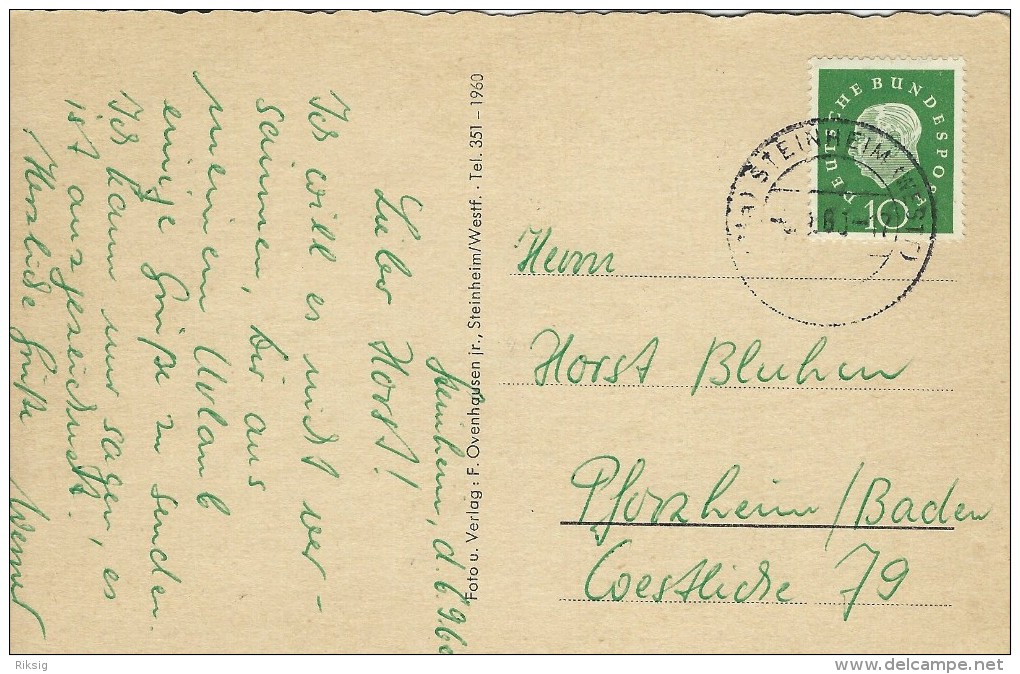 Steinheim, d. 6.9.60
Lieber Horst!
Ich will es nicht ver-
säumen, Dir aus
meinem Urlaub
einige Grüße zu senden.
Ich kann nur sagen, es
ist ausgezeichnet.
Herzliche Grüße Werner
Foto u. Verlag: F. Ovenhausen jr., Steinheim/Westf. · Tel. 351 – 1960
DEUTSCHE BUNDESPOST
10
STEINHEIM (WESTF)
Herrn
Horst Bluhen
Pforzheim/Baden
Westliche 79
Riksig
www.delcampe.net